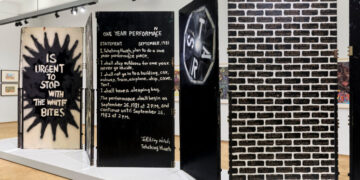 IS
URGENT
TO
STOP
WITH THE WHITE
BITES
ONE YEAR PERFORMANCE
STATEMENT SEPTEMBER, 1981
I, Tehching Hsieh, plan to do a one
year performance piece.
I shall stay outdoors for one year,
never go inside.
I shall not go in to a building, car,
subway, train, airplane, ship, cave,
tent.
I shall have a sleeping bag.
The performance shall begin on
September 26, 1981 at 2 P.M. and
continue until September 26,
1982 at 2 P.M.
Tehching Hsieh